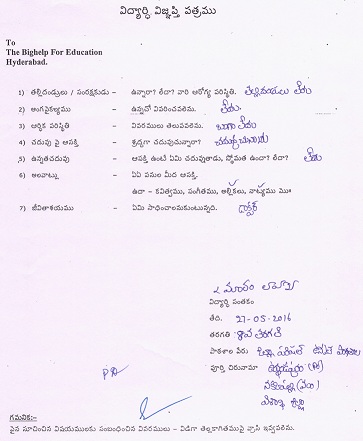 విద్యార్థి విజ్ఞప్తి పత్రము
To
The Bighelp For Education
Hyderabad.
1) తల్లిదండ్రులు / సంరక్షకుడు – ఉన్నారా? లేదా? వారి ఆరోగ్య పరిస్థితి. తల్లిదండ్రులు లేరు
2) అంగవైకల్యము – ఉన్నచో వివరించవలెను. లేదు.
3) ఆర్థిక పరిస్థితి – వివరములు తెలుపవలెను. బాగా లేదు
4) చదువు పై ఆసక్తి – శ్రద్ధగా చదువుచున్నారా? చదువుచున్నాను
5) ఉన్నతచదువు – ఆసక్తి ఉంటే ఏమి చదువుతాడు, స్తోమత ఉందా? లేదా? లేదు
6) అలవాట్లు – ఏఏ పనుల మీద ఆసక్తి.
ఉదా – కవిత్వము, సంగీతము, అల్లికలు, నాట్యము మొ॥
7) జీవితాశయము – ఏమి సాధించాలనుకుంటున్నది. డాక్టర్
విద్యార్థి సంతకం
తేది. 27-05-2016
తరగతి
పాఠశాల పేరు:
పూర్తి చిరునామా
గమనిక:-
పైన సూచించిన విషయములకు సంబంధించిన వివరములు – విడిగా తెల్లకాగితముపై వ్రాసి ఇవ్వవలెను.